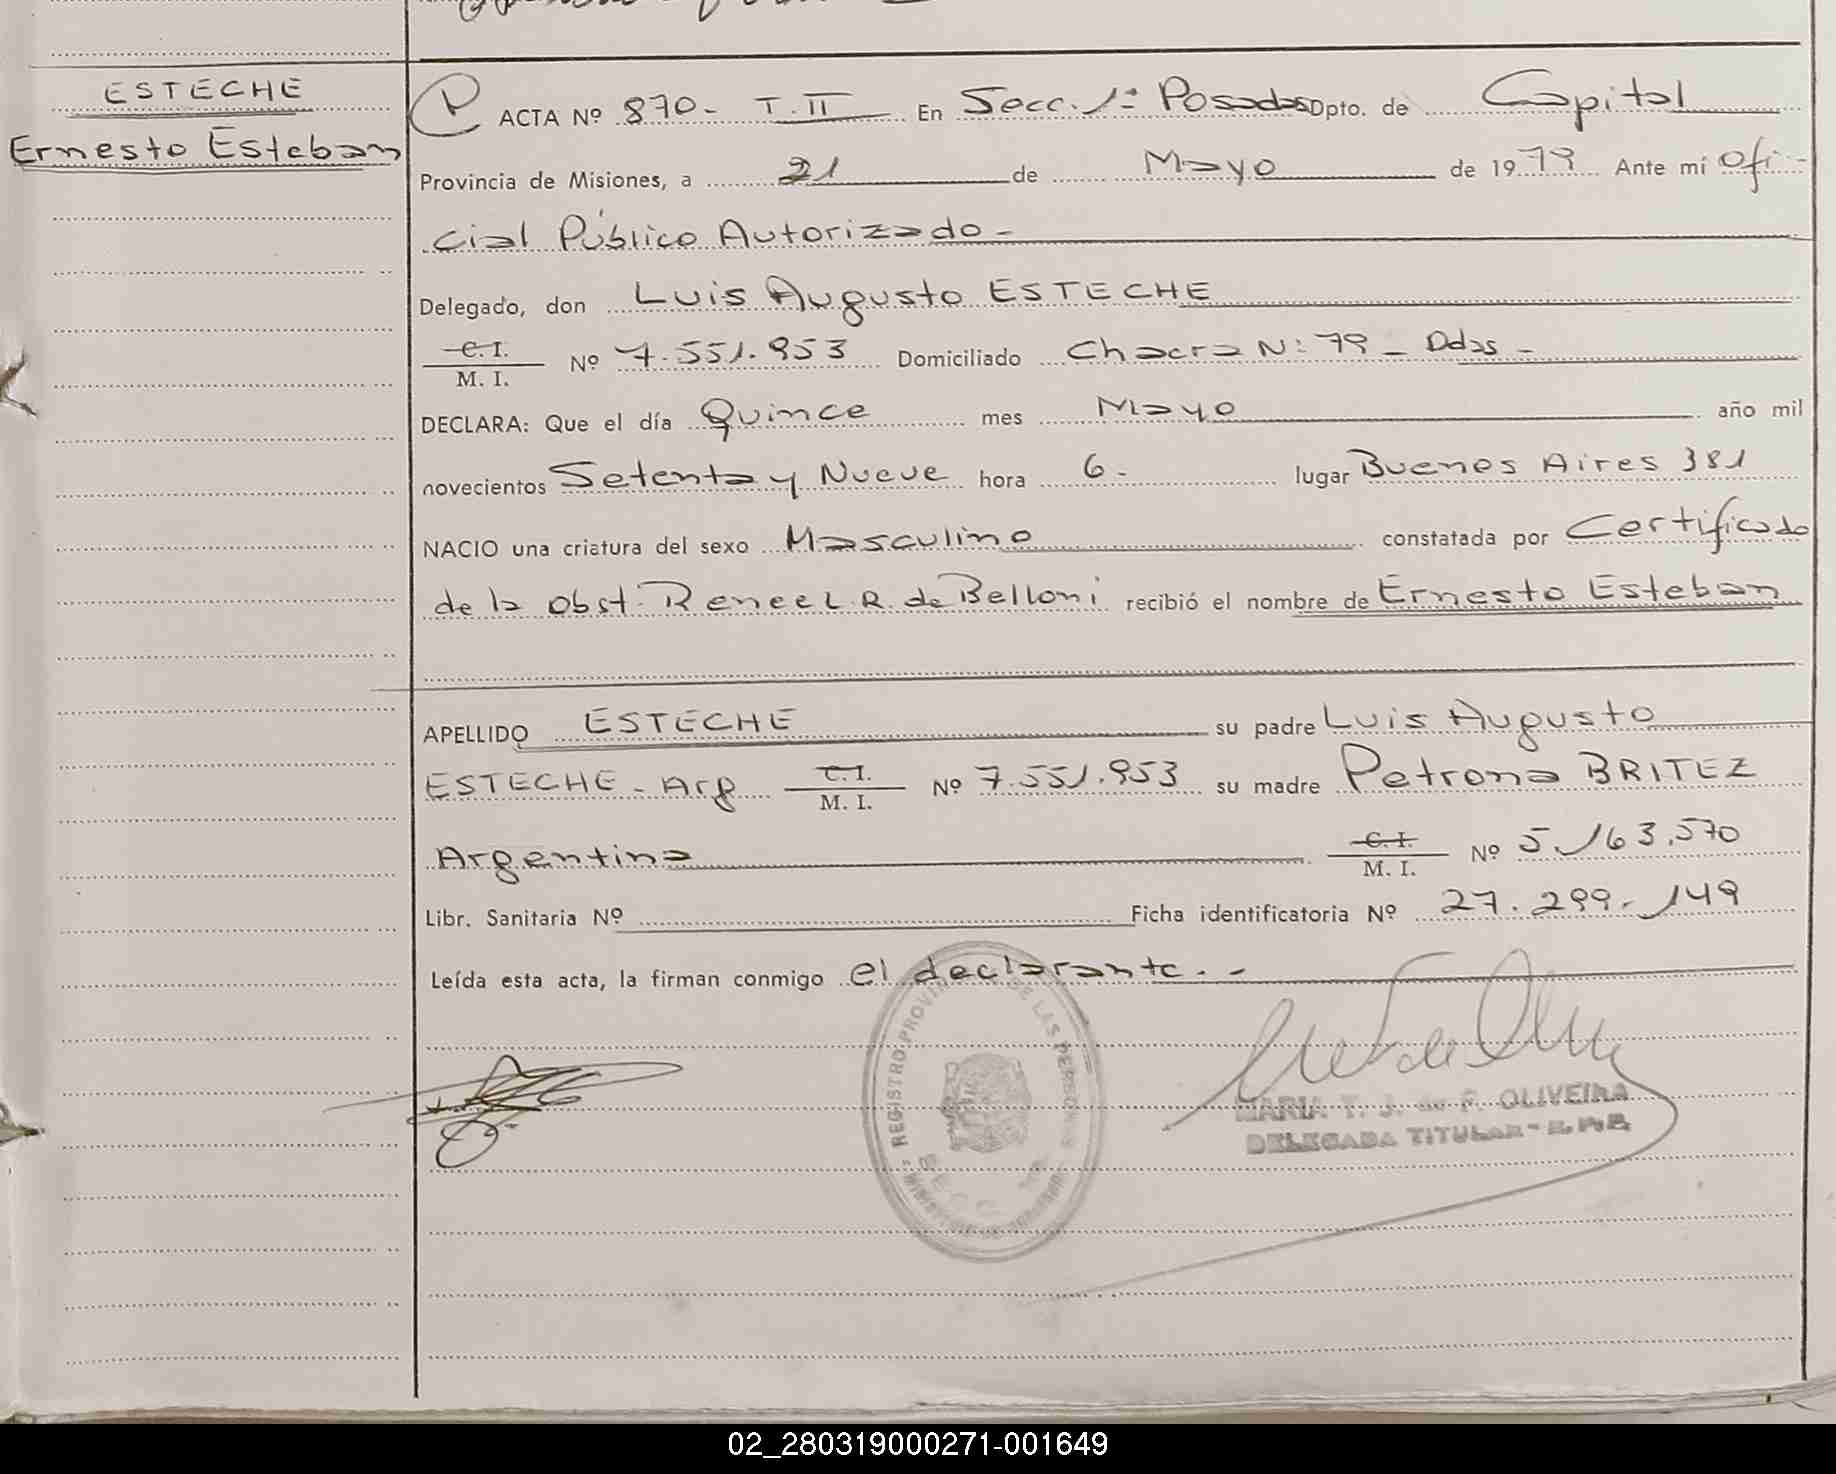 ESTECHE
Ernesto Esteban
ACTA Nº 870- T. II En Secc. 1ª Posadas Dpto. de Capital
Provincia de Misiones, a 21 de Mayo de 1979 Ante mí Ofi-
cial Público Autorizado-
Delegado, don Luis Augusto ESTECHE
C. I.
M. I.
Nº 7.551.953 Domiciliado Chacra N: 79 - Pdas -
DECLARA: Que el día Quince mes Mayo año mil
novecientos Setenta y Nueve hora 6- lugar Buenos Aires 381
NACIO una criatura del sexo Masculino constatada por Certificado
de la Obst. Renee L. R. de Belloni recibió el nombre de Ernesto Esteban
APELLIDO ESTECHE su padre Luis Augusto
ESTECHE - Arg C. I. Nº 7.551.953 su madre Petrona BRITEZ
M. I.
Argentina C. I. Nº 5.163.570
M. I.
Libr. Sanitaria Nº Ficha identificatoria Nº 27.299.149
Leída esta acta, la firman conmigo el declarante.-
REGISTRO PROVINCIAL DE LAS PERSONAS
MARIA T. J. de F. OLIVEIRA
DELEGADA TITULAR - R. P. P.
02_280319000271-001649